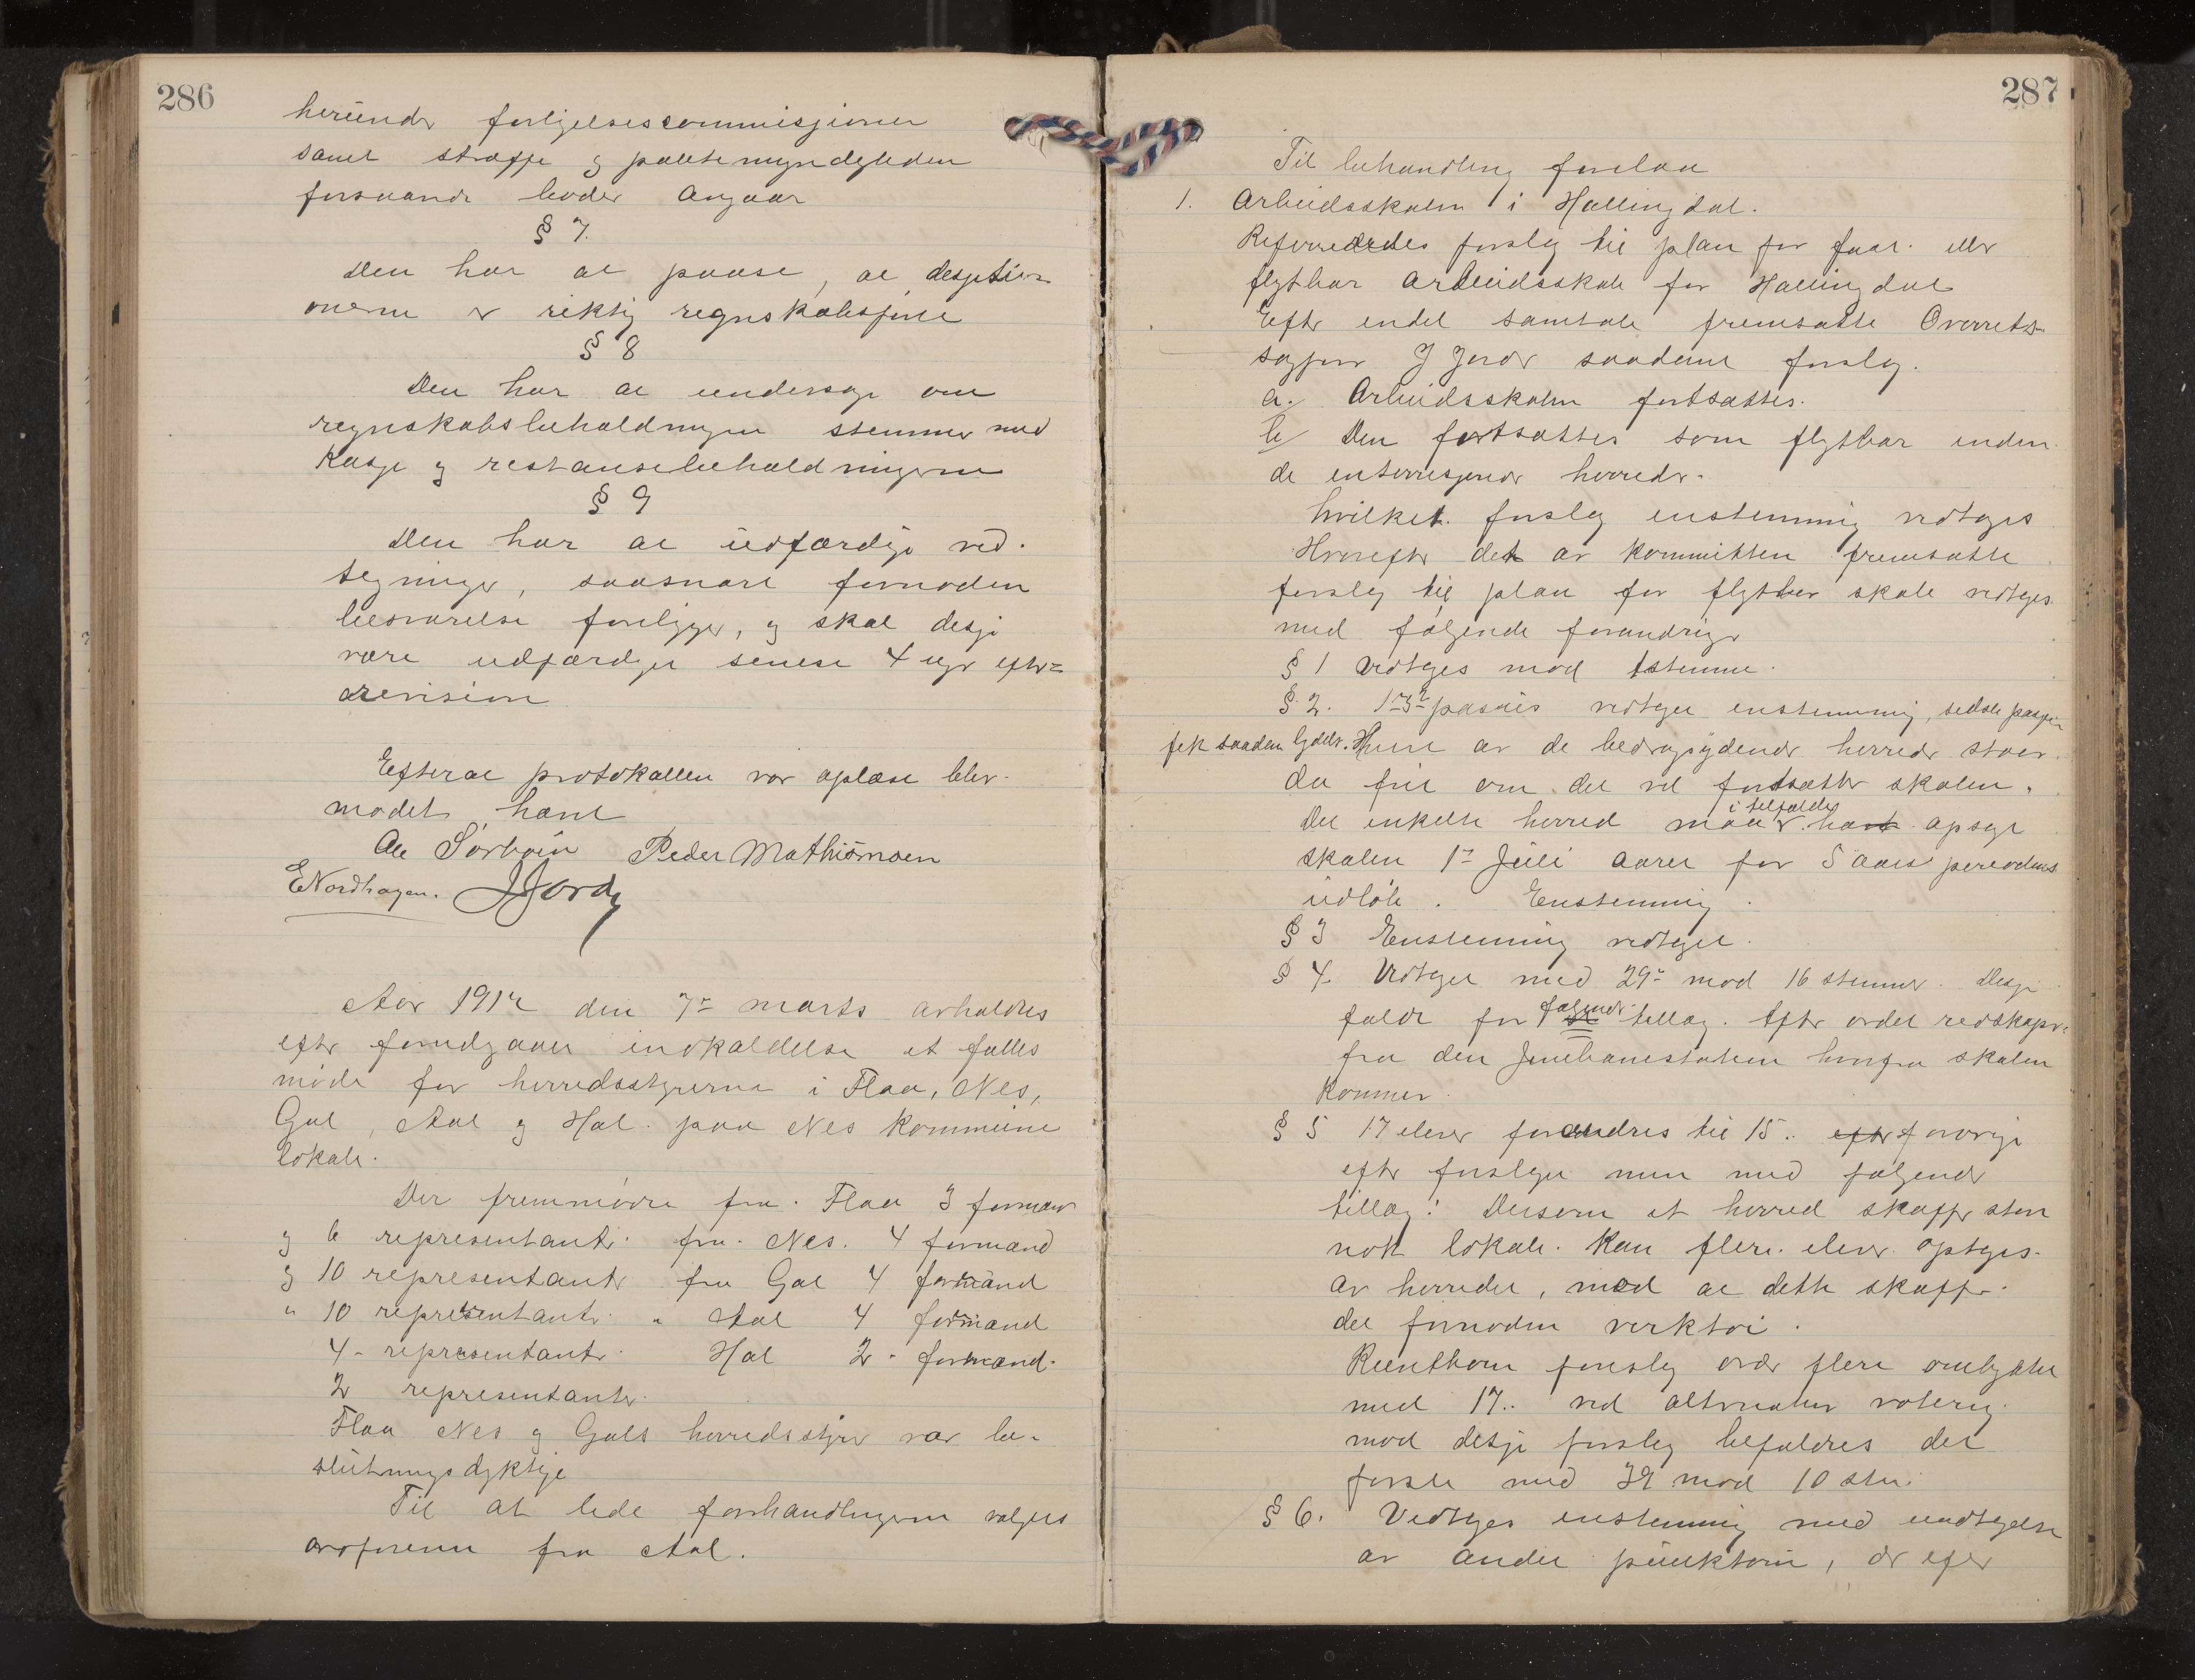 286
herunder forligelsescommisjionen
samt straffe og politimyndigheden
forsaavidt bøder angaar
§ 7.
Den har at paase, at
onerne er riktig regnskabsført
§ 8
Den har at undersøge om
regnskabsbeholdningen stemmer med
Kasse og restansebeholdningerne
§ 9
Den har at udfærdige ved-
tegninger, saasnart fornøden
besvarelse foreligger, og skal disse
være udfærdiget senest 4 uger efter
revision
Efterat protokollen var oplæst blev
mødet hævt
Ole Sørbøen Peder Mathismoen
E Nordhagen. J Jorde
Aar 1912 den 7de marts avholdtes
efter forudgaaet indkaldelse et fælles
møde for herredsstyrerne i Flaa, Nes,
Gol, Aal og Hol paa Nes kommune
lokale.
Der fremmødte fra Flaa 3 formænd
og 6 representanter fra Nes. 4 formænd
og 10 representanter fra Gol 4 formænd
" 10 representanter " Aal 4 formænd
4 representanter Hol 2 formænd
2 representanter.
Flaa Nes og Gols herredsstyre var be-
slutningsdyktige
Til at lede forhandlingerne valgtes
ordføreren fra Aal.
287
Til behandling forelaa
1. Arbeidsskolen i Hallingdal.
Refereredes forslag til plan for fast eller
flytbar arbeidsskole for Hallingdal
Efter endel samtale fremsatte Overrets-
sagfører J Jorde saadant forslag.
a. Arbeidsskolen fortsættes.
b/ Den fortsættes som flytbar inden
de interressjerede herreder.
hvilket forslag enstemmig vedtoges
Hvorefter det av kommitteen fremsatte
forslag til plan for flytbar skole vedtoges
med følgende forandringer
§ 1 vedtoges mod 1 stemme.
§ 2. passus vedtaget enstemmig, sidste passus
fik saadan lydelse. Hvert av de bedragsydende herreder staar
da frit om det vil fortsætte skolen.
Det enkelte herred maa i tilfælde opsige
skolen 1ste Juli aaret for 5 aars periodens
udløb. Enstemmig.
§ 3 Enstemmig vedtaget.
§ 4. Vedtaget med 29 mod 16 stemmer. Disse
faldt for følgende tillæg. Efter ordet redskaper:
fra den Jernbanestation hvorfra skolen
kommer.
§ 5 17 elever forandres til 15.. efter forøvrig
efter forslaget men med følgende
tillæg: Dersom et herred skaffer stort
nok lokale. Kan flere elever optages
av herredet, mod at dette skaffer
det fornødne verktøi.
forslag
med 17.. ved alternativ votering
mod disse forslag befaldtes det
første med 32 mod 10 stm.
§ 6. Vedtages enstemmig med undtagelse
av andet punktum, der efter